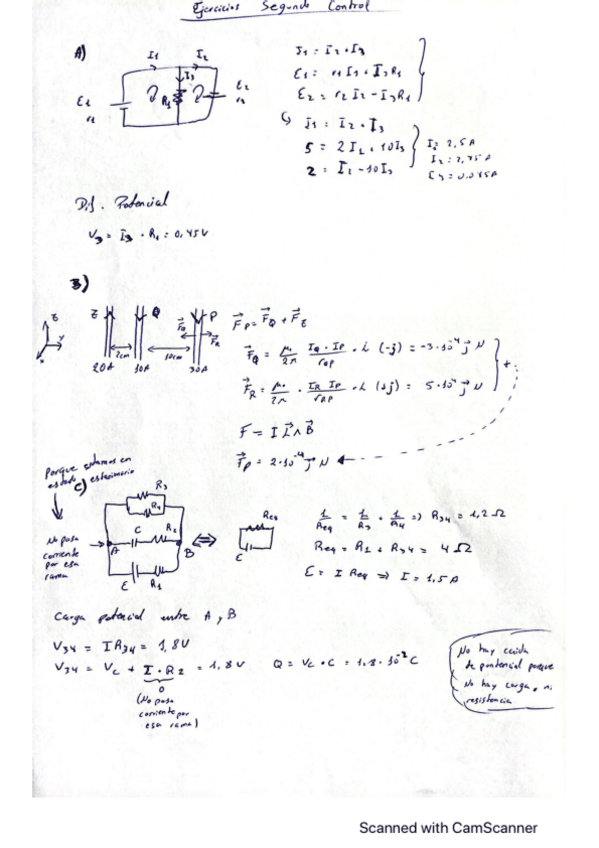 Ejercicios Segundo Control
A)
I1 I2
I3
R1
E1
r1
E2
r2
I1 = I2 + I3
E1 = r1 I1 + I3 R1
E2 = r2 I2 - I3 R1
I1 = I2 + I3
5 = 2 I1 + 10 I3
2 = I2 - 10 I3
Dif. Potencial
V3 = I3 · R1 = 0,45V
B)
z y x
Q P
2cm 10cm
20A 10A 30A
F⃗P = F⃗Q + F⃗R
F⃗Q = μ0/2π · IQ · IP / rQP · L (-j) = -3·10⁻⁴ j⃗ N
F⃗R = μ0/2π · IR IP / rRP · L (+j) = 5·10⁻⁴ j⃗ N
+
F = I L⃗ ∧ B⃗
F⃗P = 2·10⁻⁴ j⃗ N
Porque estamos en
estado estacionario
C)
No pasa
corriente
por esa
rama
R3
R4
C R2
A B
E R1
⇔
Req
E
1/Req = 1/R3 + 1/R4 ⇒ R34 = 1,2 Ω
Req = R1 + R34 = 4 Ω
E = I Req ⇒ I = 1,5 A
Carga potencial entre A, B
V34 = I R34 = 1,8V
V34 = VC + I · R2 = 1,8 V Q = VC · C = 1,8 · 10⁻² C
0
(No pasa
corriente por
esa rama)
No hay caida
de pontencial porque
No hay carga, ni
resistencia
Scanned with CamScanner